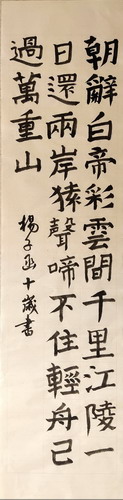 朝辭白帝彩雲間千里江陵一
日還兩岸猿聲啼不住輕舟已
過萬重山
楊子函十歲書